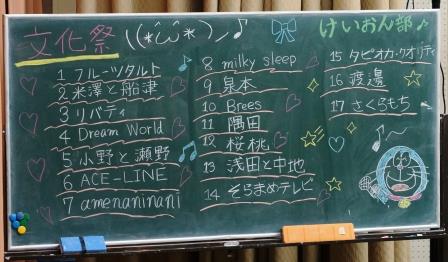 文化祭 \((*'ω'*)ノ♪
けいおん部♪
1 フルーツタルト
2 米澤と船津
3 リバティ
4 Dream World
5 小野と瀬野
6 ACE-LINE
7 amenaninani
8 milky sleep
9 泉本
10 Brees
11 隅田
12 桜桃
13 浅田と中地
14 そらまめテレビ
15 タピオカ・クオリティ
16 渡邊
17 さくらもち